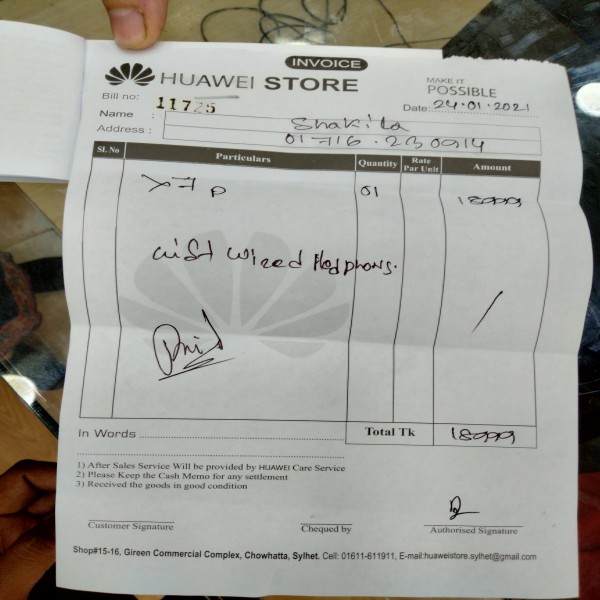 INVOICE
HUAWEI STORE
MAKE IT
POSSIBLE
Bill no: 11725
Date: 24.01.2021
Name : Shakila
Address : 01716.230914
SL No Particulars Quantity Rate Per Unit Amount
Y7P 01 18999
Wired Hedphons.
Paid
Total Tk 18999
In Words
1) After Sales Service Will be provided by HUAWEI Care Service
2) Please Keep the Cash Memo for any settlement
3) Received the goods in good condition
Customer Signature Chequed by Authorised Signature
Shop#15-16, Gireen Commercial Complex, Chowhatta, Sylhet. Cell: 01611-611911, E-mail:huaweistore.sylhet@gmail.com